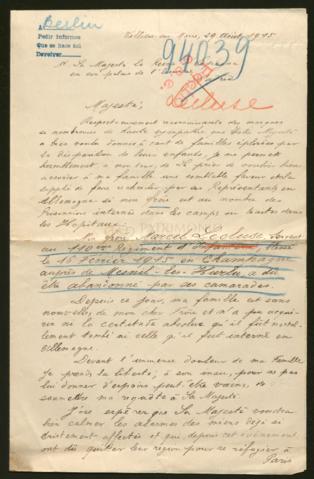 A
Berlin
Pedir Informes
Que se hace así
Devolver
29 Août 1915
94039
A Sa Majesté le Roi
en son palais de
Majesté,
Respectueusement reconnaissante des marques
si nombreuses de haute sympathie que Votre Majesté
a bien voulu donner à tant de familles éplorées par
la disparition de leurs enfants, je me permets
humblement à mon tour, de La prier de vouloir bien
accorder à ma famille une semblable faveur et de la
supplie de faire rechercher par ses Représentants en
Allemagne si mon frère est au nombre des
Prisonniers internés dans les camps ou traités dans
les Hôpitaux.
Mon frère Marcel Decaluse, Sergent
au 110ème Régiment d'Infanterie, blessé
le 16 Février 1915 en Champagne
auprès de Mesnil-les-Hurlus, a dû
être abandonné par ses camarades.
Depuis ce jour, ma famille est sans
nouvelles de mon cher frère et n'a pu acquérir
ni la certitude absolue qu'il fut mortellement
tombé ni celle qu'il fut interné en
Allemagne.
Devant l'immense douleur de ma famille
je prends la liberté, à son insu, pour ne pas
lui donner d'espoirs peut-être vains, de
soumettre ma requête à Sa Majesté.
J'ose espérer que Sa Majesté voudra
bien calmer les alarmes des miens déjà si
tristement affectés et qui, depuis cet événement,
ont dû quitter leur région pour se réfugier à
Paris